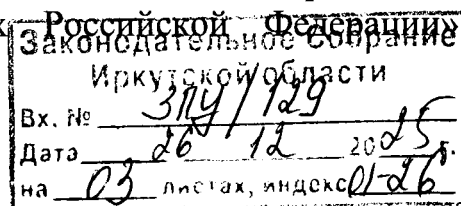 Российской Федерации»
Законодательное Собрание
Иркутской области
Вх. № ЗПУ/129
Дата 26 12 2025 г.
на 03 листах, индекс 01-26